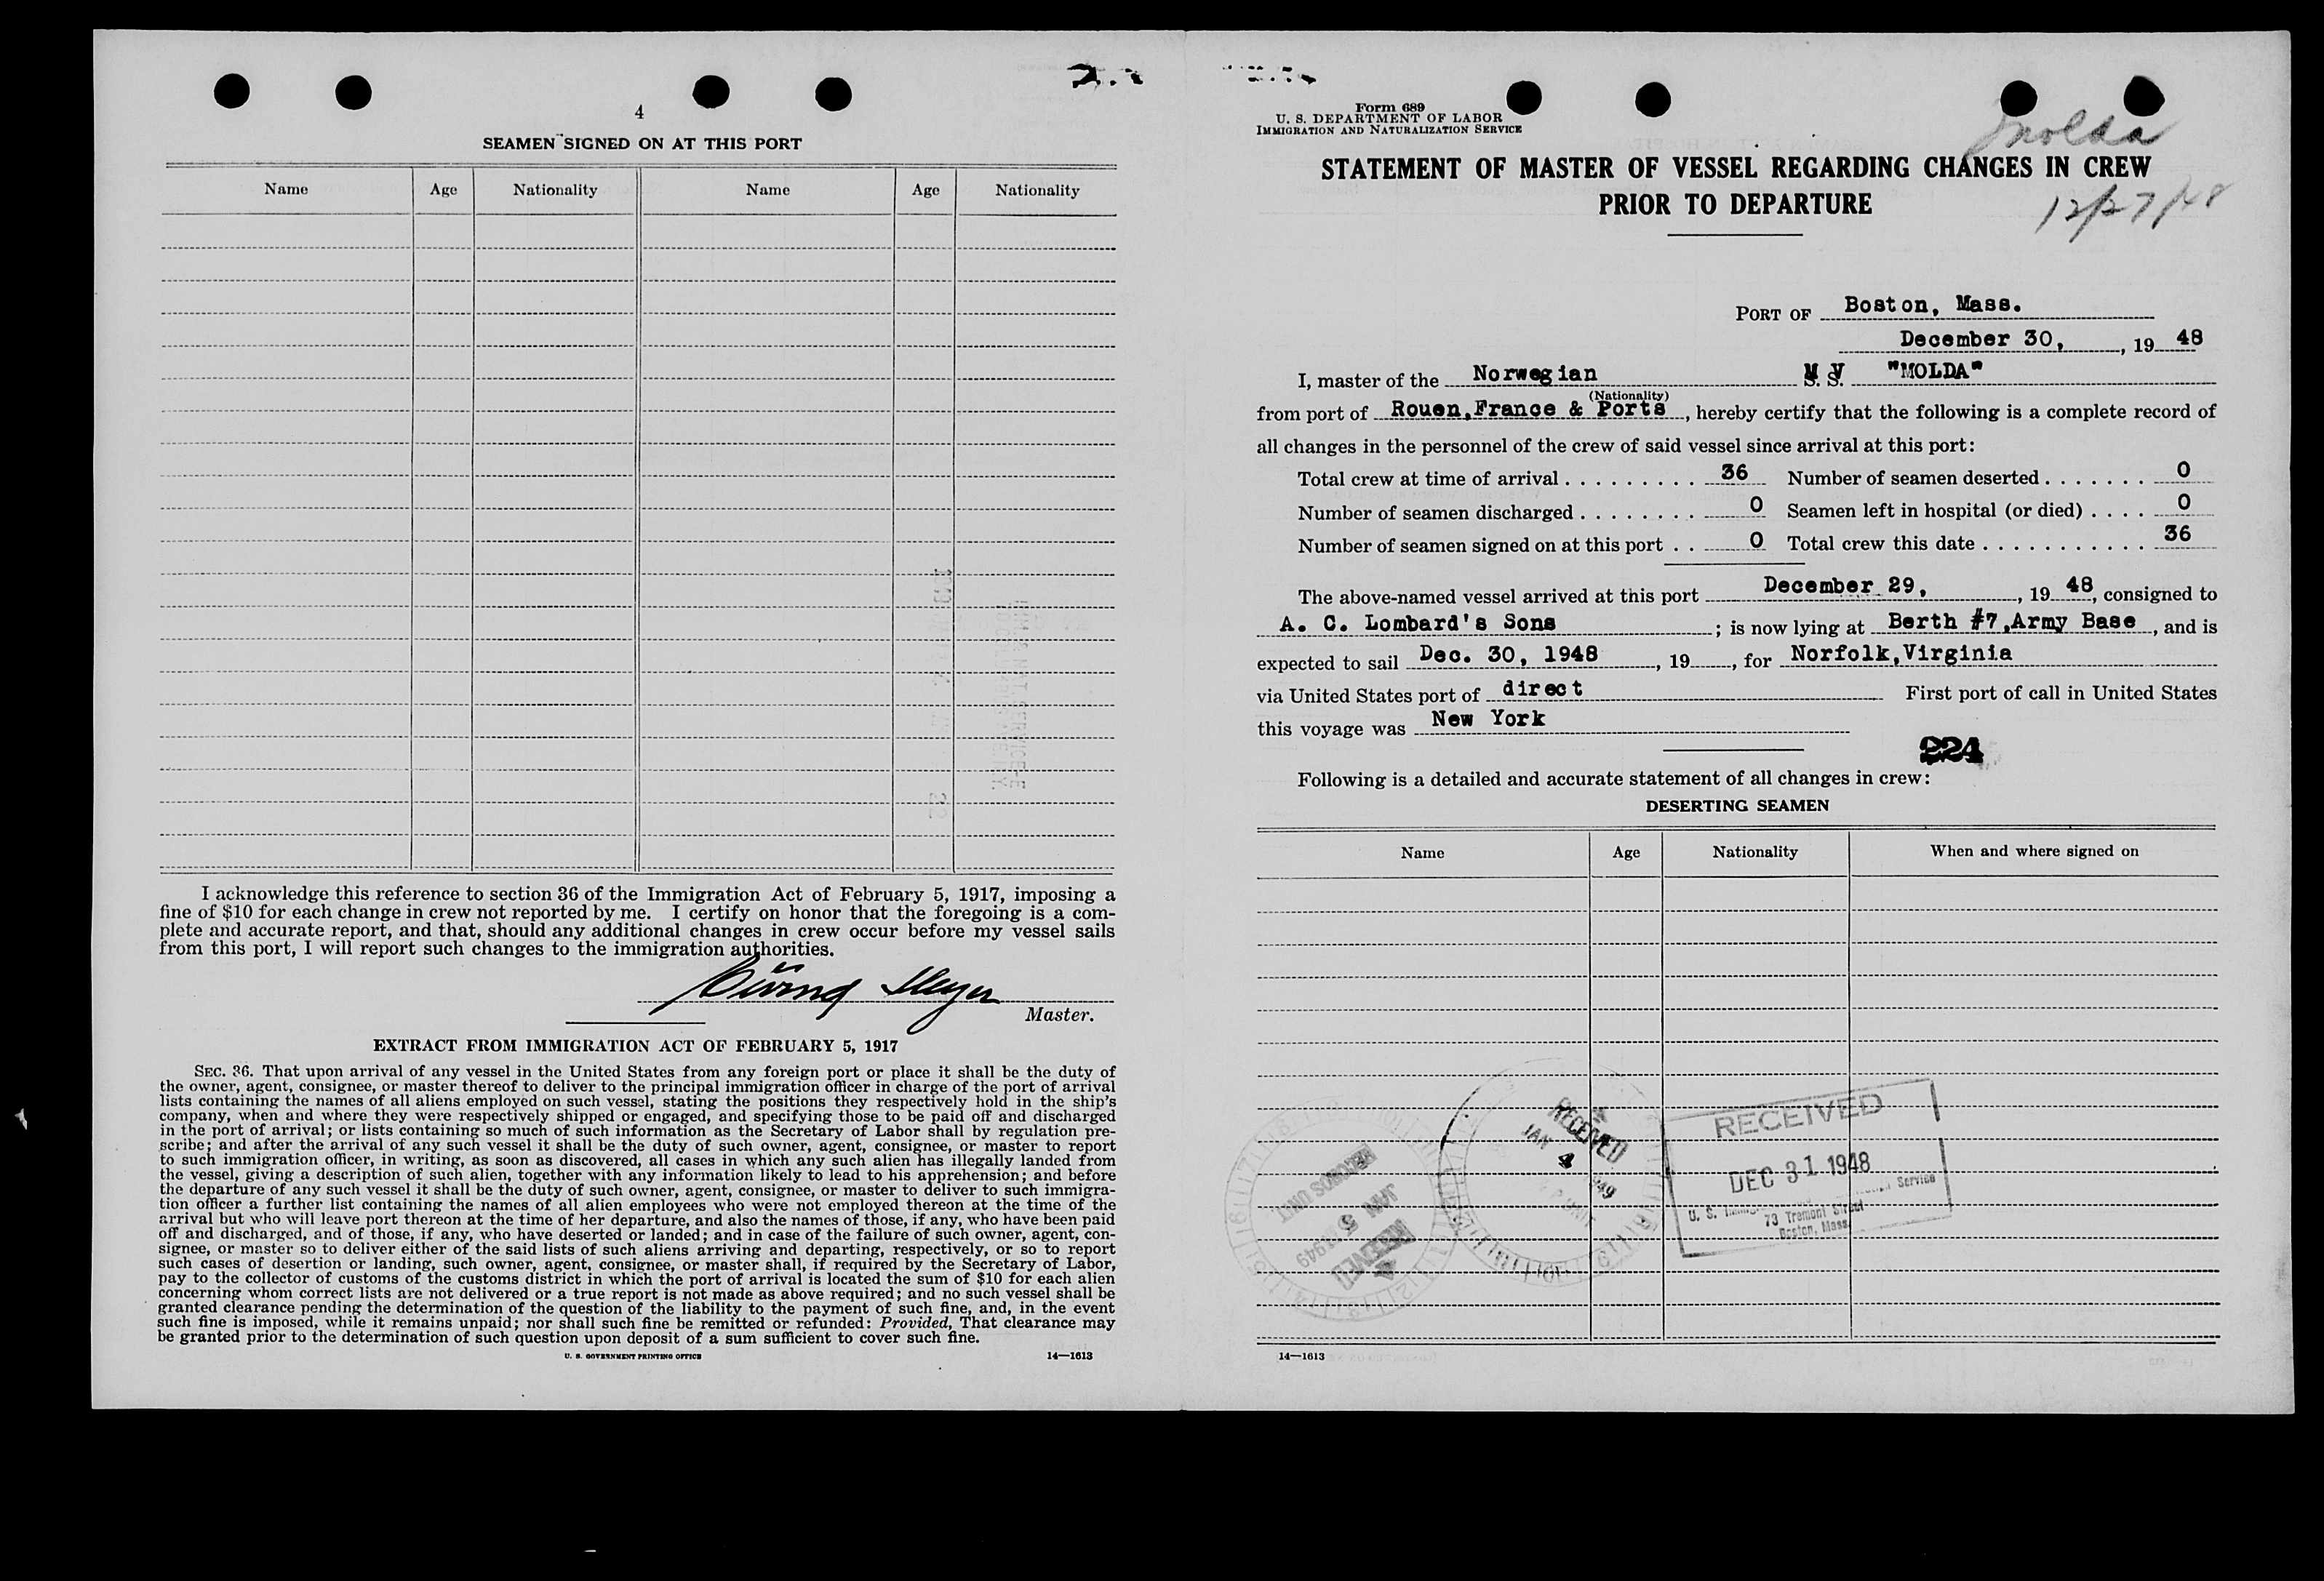 4
SEAMEN SIGNED ON AT THIS PORT
Name Age Nationality Name Age Nationality
I acknowledge this reference to section 36 of the Immigration Act of February 5, 1917, imposing a
fine of $10 for each change in crew not reported by me. I certify on honor that the foregoing is a com-
plete and accurate report, and that, should any additional changes in crew occur before my vessel sails
from this port, I will report such changes to the immigration authorities.
Master.
EXTRACT FROM IMMIGRATION ACT OF FEBRUARY 5, 1917
SEC. 36. That upon arrival of any vessel in the United States from any foreign port or place it shall be the duty of
the owner, agent, consignee, or master thereof to deliver to the principal immigration officer in charge of the port of arrival
lists containing the names of all aliens employed on such vessel, stating the positions they respectively hold in the ship's
company, when and where they were respectively shipped or engaged, and specifying those to be paid off and discharged
in the port of arrival; or lists containing so much of such information as the Secretary of Labor shall by regulation pre-
scribe; and after the arrival of any such vessel it shall be the duty of such owner, agent, consignee, or master to report
to such immigration officer, in writing, as soon as discovered, all cases in which any such alien has illegally landed from
the vessel, giving a description of such alien, together with any information likely to lead to his apprehension; and before
the departure of any such vessel it shall be the duty of such owner, agent, consignee, or master to deliver to such immigra-
tion officer a further list containing the names of all alien employees who were not employed thereon at the time of the
arrival but who will leave port thereon at the time of her departure, and also the names of those, if any, who have been paid
off and discharged, and of those, if any, who have deserted or landed; and in case of the failure of such owner, agent, con-
signee, or master so to deliver either of the said lists of such aliens arriving and departing, respectively, or so to report
such cases of desertion or landing, such owner, agent, consignee, or master shall, if required by the Secretary of Labor,
pay to the collector of customs of the customs district in which the port of arrival is located the sum of $10 for each alien
concerning whom correct lists are not delivered or a true report is not made as above required; and no such vessel shall be
granted clearance pending the determination of the question of the liability to the payment of such fine, and, in the event
such fine is imposed, while it remains unpaid; nor shall such fine be remitted or refunded: Provided, That clearance may
be granted prior to the determination of such question upon deposit of a sum sufficient to cover such fine.
U. S. GOVERNMENT PRINTING OFFICE 14—1613
Form 689
U. S. DEPARTMENT OF LABOR
IMMIGRATION AND NATURALIZATION SERVICE
Molda
STATEMENT OF MASTER OF VESSEL REGARDING CHANGES IN CREW
PRIOR TO DEPARTURE
12/27/48
PORT OF Boston, Mass.
December 30, , 19 48
I, master of the Norwegian M V S. S. "MOLDA"
(Nationality)
from port of Rouen,France & Ports , hereby certify that the following is a complete record of
all changes in the personnel of the crew of said vessel since arrival at this port:
Total crew at time of arrival . . . . . . . . . 36 Number of seamen deserted . . . . . . . 0
Number of seamen discharged . . . . . . . . 0 Seamen left in hospital (or died) . . . . 0
Number of seamen signed on at this port . . 0 Total crew this date . . . . . . . . . . . 36
The above-named vessel arrived at this port December 29, , 19 48, consigned to
A. C. Lombard's Sons ; is now lying at Berth #7,Army Base , and is
expected to sail Dec. 30, 1948 , 19 , for Norfolk,Virginia
via United States port of direct First port of call in United States
this voyage was New York
224
Following is a detailed and accurate statement of all changes in crew:
DESERTING SEAMEN
Name Age Nationality When and where signed on
RECEIVED
JAN 4 1949
RECORDS UNIT
JAN 5 1949
RECEIVED
RECEIVED
DEC 31 1948
U. S. Service
73 Tremont Street
Boston, Mass.
14—1613